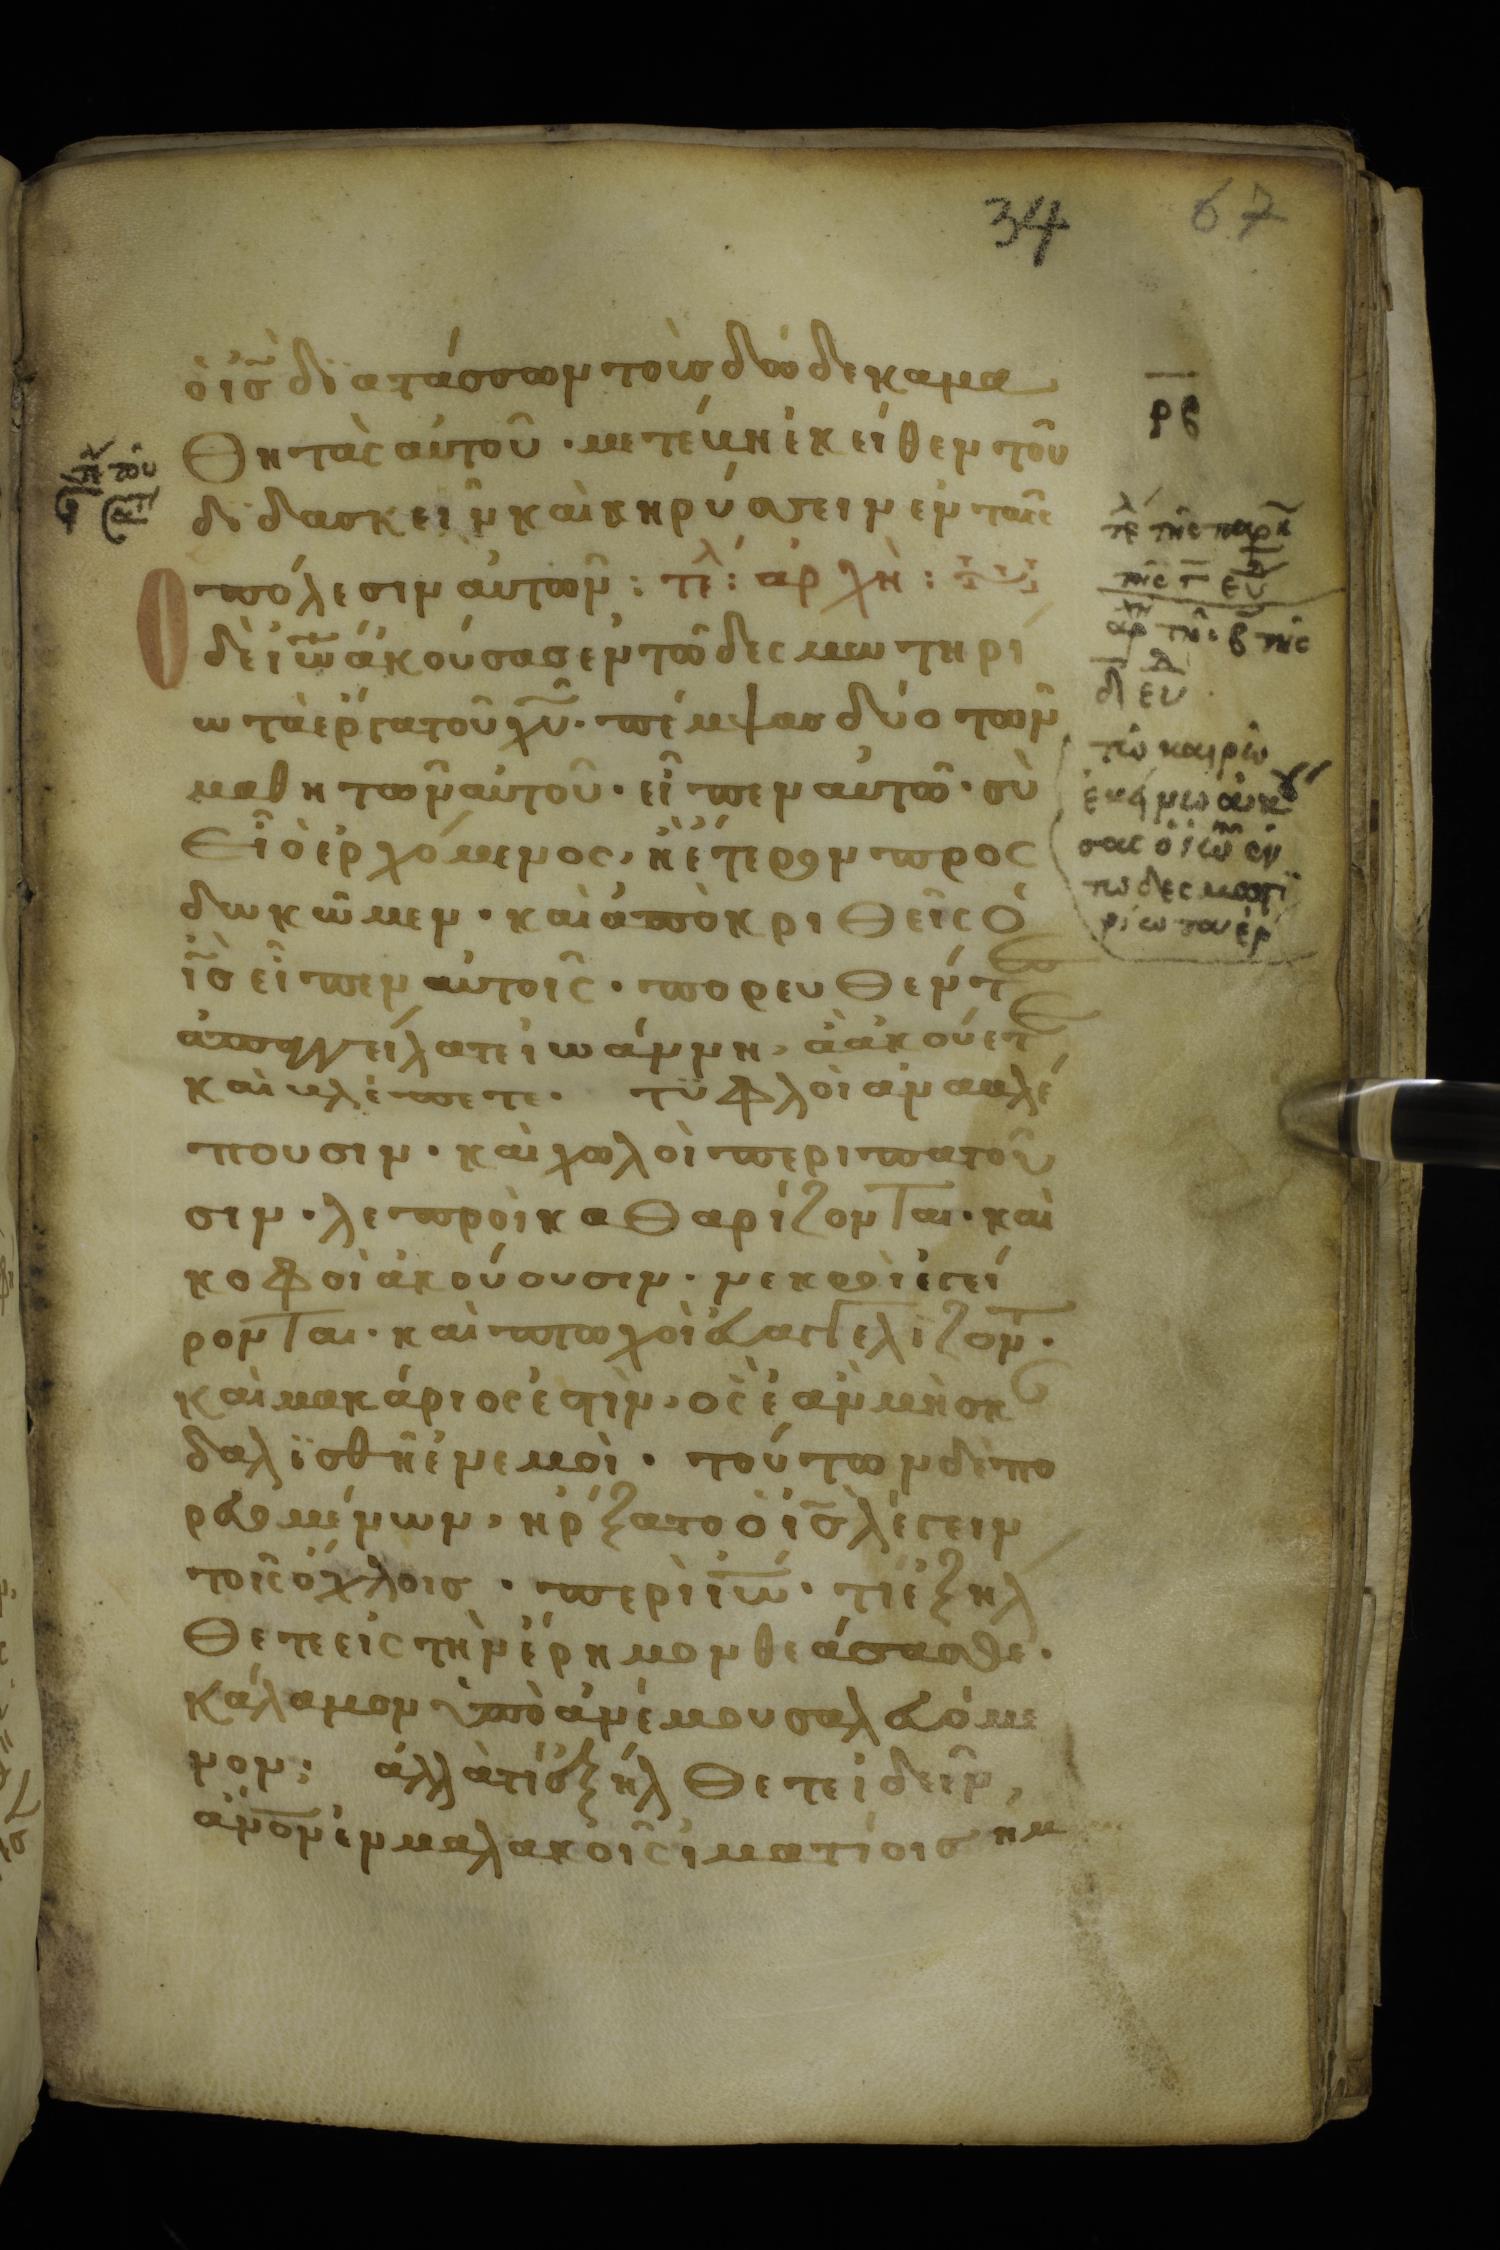 34 67
ὁ ις̅ διατάσσων τοῖς δώδεκα μα
θηταῖς αὐτοῦ · μετέβη ἐκεῖθεν τοῦ
διδάσκειν καὶ κηρύσσειν ἐν ταῖς
πόλεσιν αὐτῶν : τέλ : ἀρχὴ :
Ο
δὲ ἰω̅ ἀκούσας ἐν τῶ δεσμωτηρί
ω τὰ ἔργα τοῦ χυ̅ · πέμψας δύο τῶν
μαθητῶν αὐτοῦ · εἶπεν αὐτῶ · σὺ
εἶ ὁ ἐρχόμενος, ἢ ἕτερον προς
δωκῶμεν · καὶ ἀποκριθεῖς ὁ
ις̅ εἶπεν αὐτοῖς · πορευθέντες
ἀπαγγείλατε ἰωάννη, ἃ ἀκούετε
καὶ βλέπετε · τυφλοὶ ἀναβλέ
πουσιν · καὶ χωλοὶ περιπατοῦ
σιν · λεπροὶ καθαρίζονται · καὶ
κοφοὶ ἀκούουσιν · νεκροὶ ἐγεί
ρονται · καὶ πτωχοὶ εὐαγγελίζοντ ·
καὶ μακάριος ἐστὶν, ὃς ἐὰν μὴ σκ
δαλϊσθῆ ἐν ἐμοὶ · τούτων δὲ πο
ρευομένων, ἤρξατο ὁ ις̅ λέγειν
τοῖς ὄχλοις · περὶ ἰω̅ · τί ἐξήλ
θετε εἰς τὴν ἔρημον θεάσασθε ·
κάλαμον ὑπὸ ἀνέμου σαλευόμε
νον ; ἀλλὰ τί ἐξήλθετε ἰδεῖν,
ἄνον̅ ἐν μαλακοῖς ἱματίοις ἠμ
ρβ
τε τῆς παρα
τῆς γ εβ
ἀρχ τῆς β τῆς
δ εβ
τῶ καιρῶ
ἐκείνω ἀκού
σας ὁ ἰω̅ ἐν
τῶ δεσμωτη
ρίω τὰ ἔρ